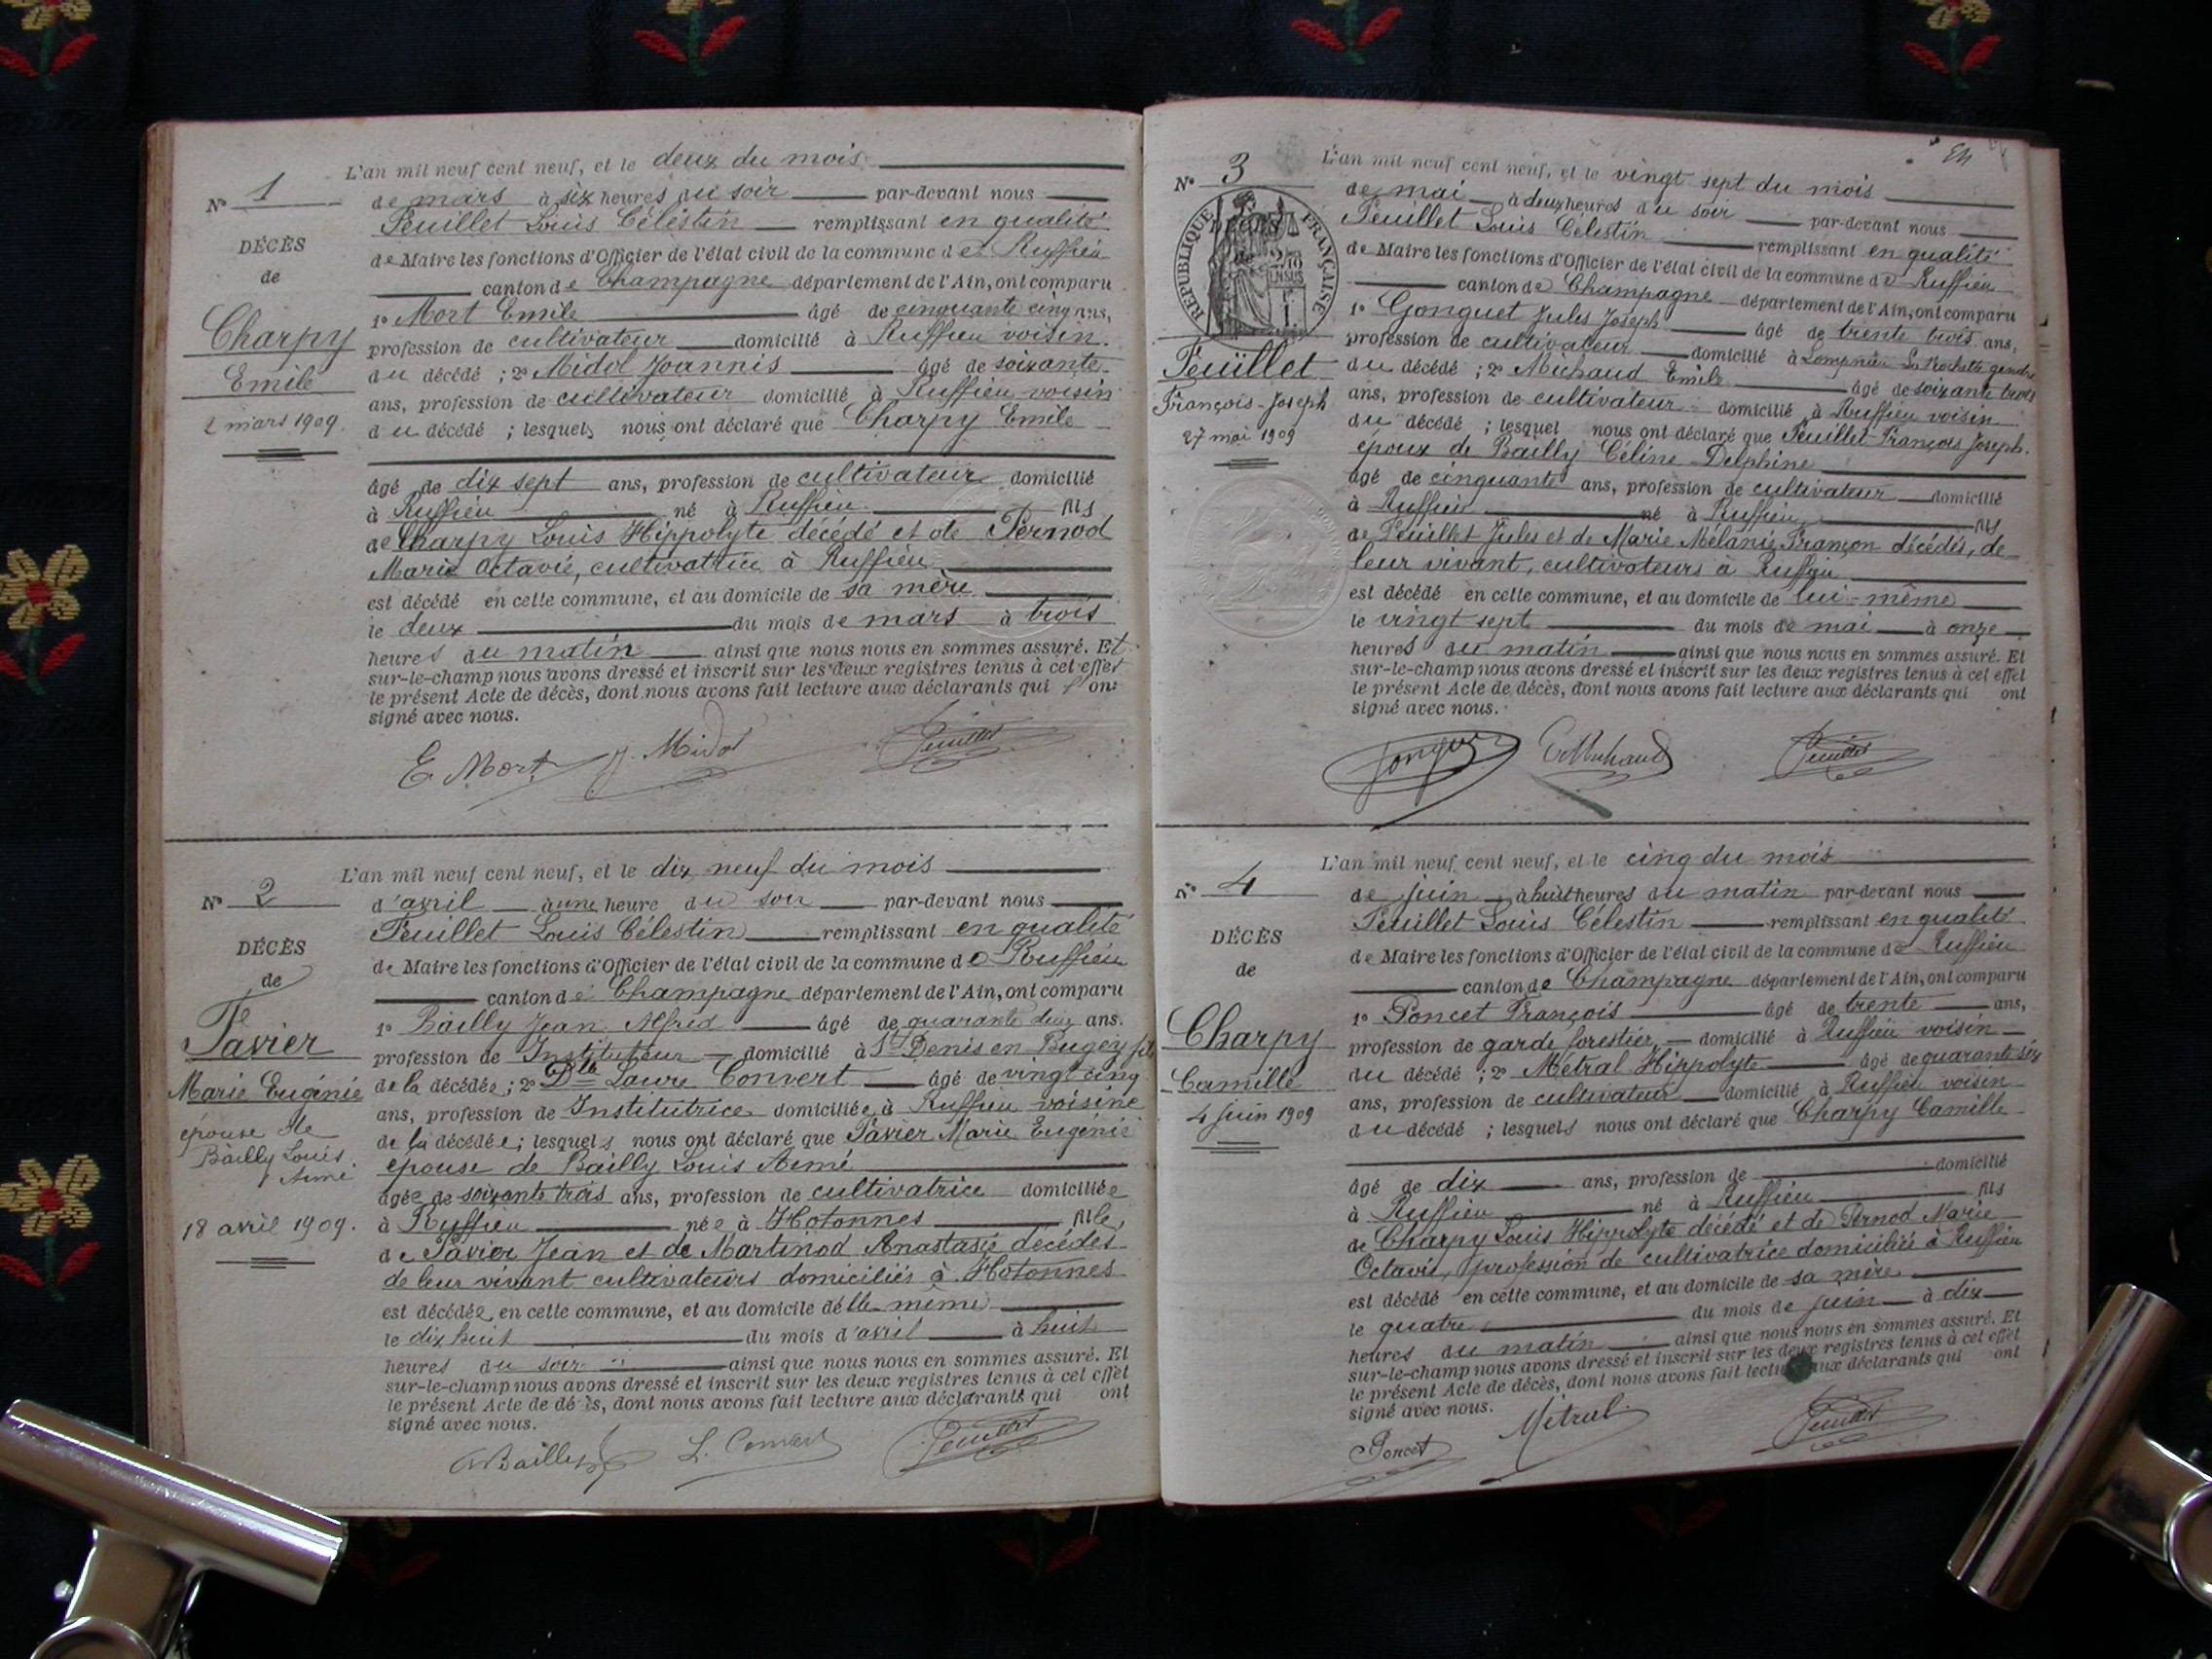 L'an mil neuf cent neuf, et le deux du mois
N° 1
de mars à six heures du soir par-devant nous
Feuillet Louis Célestin remplissant en qualité
DÉCÈS
de Maire les fonctions d'Officier de l'état civil de la commune de Ruffieu
de
canton de Champagne département de l'Ain, ont comparu
1° Mort Emile âgé de cinquante cinq ans,
Charpy
profession de cultivateur domicilié à Ruffieu voisin
Emile
du décédé ; 2° Midol Joannis âgé de soixante
ans, profession de cultivateur domicilié à Ruffieu voisin
2 mars 1909.
du décédé ; lesquels nous ont déclaré que Charpy Emile
âgé de dix sept ans, profession de cultivateur domicilié
à Ruffieu né à Ruffieu fils
de Charpy Louis Hippolyte décédé et de Pernod
Marie Octavie, cultivatrice à Ruffieu
est décédé en cette commune, et au domicile de sa mère
le deux du mois de mars à trois
heures du matin ainsi que nous nous en sommes assuré. Et
sur-le-champ nous avons dressé et inscrit sur les deux registres tenus à cet effet
le présent Acte de décès, dont nous avons fait lecture aux déclarants qui l'ont
signé avec nous.
E. Mort J. Midol Feuillet
L'an mil neuf cent neuf, et le dix neuf du mois
N° 2
d'avril à une heure du soir par-devant nous
Feuillet Louis Célestin remplissant en qualité
DÉCÈS
de Maire les fonctions d'Officier de l'état civil de la commune de Ruffieu
de
canton de Champagne département de l'Ain, ont comparu
1° Bailly Jean Alfred âgé de quarante deux ans.
Tavier
profession de Instituteur domicilié à St Denis en Bugey fils
Marie Eugénie
de la décédée ; 2° Dlle Laure Convert âgé de vingt cinq
ans, profession de Institutrice domiciliée à Ruffieu voisine
épouse de
de la décédée ; lesquels nous ont déclaré que Tavier Marie Eugénie
Bailly Louis
épouse de Bailly Louis Aimé
Aimé
âgée de soixante trois ans, profession de cultivatrice domiciliée
18 avril 1909.
à Ruffieu née à Hotonnes fille
de Tavier Jean et de Martinod Anastasie décédés
de leur vivant cultivateurs domiciliés à Hotonnes
est décédée en cette commune, et au domicile d'elle-même
le dix huit du mois d'avril à huit
heures du soir ainsi que nous nous en sommes assuré. Et
sur-le-champ nous avons dressé et inscrit sur les deux registres tenus à cet effet
le présent Acte de décès, dont nous avons fait lecture aux déclarants qui ont
signé avec nous.
Bailly L. Convert Feuillet
L'an mil neuf cent neuf, et le vingt sept du mois
N° 3
de mai à deux heures du soir par-devant nous
Feuillet Louis Célestin remplissant en qualité
RÉPUBLIQUE FRANÇAISE
de Maire les fonctions d'Officier de l'état civil de la commune de Ruffieu
canton de Champagne département de l'Ain, ont comparu
1° Gonguet Jules Joseph âgé de trente trois ans,
profession de cultivateur domicilié à Lompnieu La Rochette gendre
Feuillet
du décédé ; 2° Michaud Emile âgé de soixante trois
François-Joseph
ans, profession de cultivateur domicilié à Ruffieu voisin
27 mai 1909
du décédé ; lesquel nous ont déclaré que Feuillet François Joseph.
époux de Bailly Céline Delphine
âgé de cinquante ans, profession de cultivateur domicilié
à Ruffieu né à Ruffieu fils
de Feuillet Jules et de Marie Mélanie Françon décédés, de
leur vivant, cultivateurs à Ruffieu
est décédé en cette commune, et au domicile de lui-même
le vingt sept du mois de mai à onze
heures du matin ainsi que nous nous en sommes assuré. Et
sur-le-champ nous avons dressé et inscrit sur les deux registres tenus à cet effet
le présent Acte de décès, dont nous avons fait lecture aux déclarants qui ont
signé avec nous.
Gonguet E Michaud Feuillet
L'an mil neuf cent neuf, et le cinq du mois
N° 4
de juin à huit heures du matin par-devant nous
Feuillet Louis Célestin remplissant en qualité
DÉCÈS
de Maire les fonctions d'Officier de l'état civil de la commune de Ruffieu
de
canton de Champagne département de l'Ain, ont comparu
1° Poncet François âgé de trente ans,
Charpy
profession de garde forestier domicilié à Ruffieu voisin
Camille
du décédé ; 2° Métral Hippolyte âgé de quarante six
ans, profession de cultivateur domicilié à Ruffieu voisin
4 juin 1909
du décédé ; lesquels nous ont déclaré que Charpy Camille
âgé de dix ans, profession de domicilié
à Ruffieu né à Ruffieu fils
de Charpy Louis Hippolyte décédé et de Pernod Marie
Octavie, profession de cultivatrice domiciliée à Ruffieu
est décédé en cette commune, et au domicile de sa mère
le quatre du mois de juin à dix
heures du matin ainsi que nous nous en sommes assuré. Et
sur-le-champ nous avons dressé et inscrit sur les deux registres tenus à cet effet
le présent Acte de décès, dont nous avons fait lecture aux déclarants qui ont
signé avec nous.
Poncet Métral Feuillet